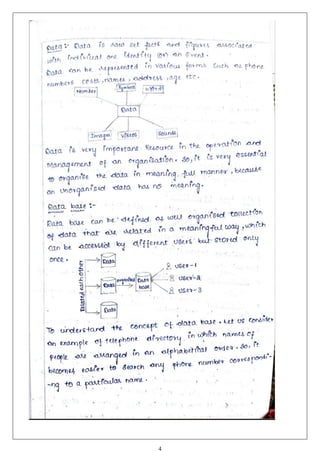 Data :- Data is raw set facts and figures associated
with individual one identity (or) an Event.
Data can be represented in various forms such as phone
numbers costs, names, address, age etc.
Number Symbol words
Data
Images Videos Sounds
Data is very important Resource in the operation and
Management of an organisation. So, it is very essential
to organise the data in meaning full manner, because
an unorganised data has no meaning.
Data base :-
Data base can be defined as well organised collection
of data that are related in a meaningful way, which
can be accessed by different users but stored only
once.
Related each other
Data
Data Data base
Data
user-1
user-2
user-3
To understand the concept of data base. Let us consider
an example of telephone directory in which names of
people are arranged in an alphabetical order. So, it
becomes easier to search any phone number correspondi-
-ng to a particular name.
4